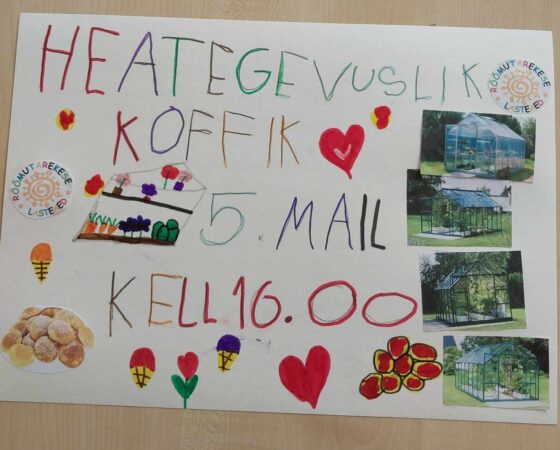 HEATEGEVUSLIK
KOFFIK
5. MAIL
KELL 16.00
RÕÕMUTAREKESE
LASTEAED
RÕÕMUTAREKESE
LASTEAED